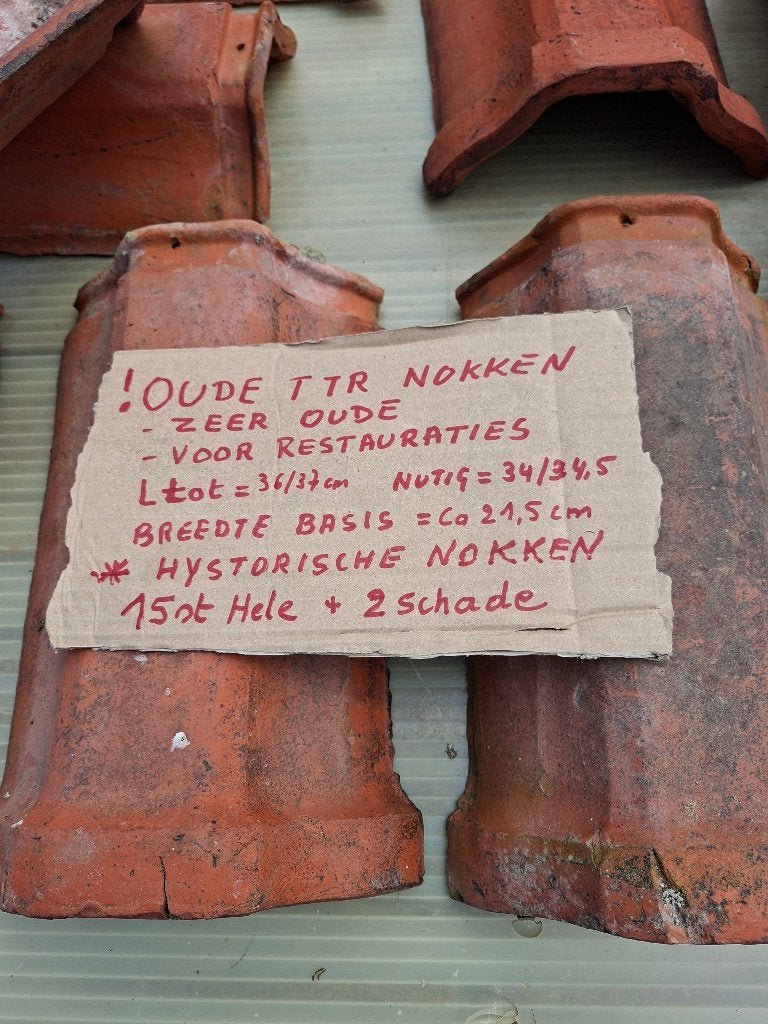 ! OUDE TTR NOKKEN
- ZEER OUDE
- VOOR RESTAURATIES
Ltot = 36/37cm NUTIG = 34/34,5
BREEDTE BASIS = Ca 21,5 cm
* HYSTORISCHE NOKKEN
15st Hele + 2 schade